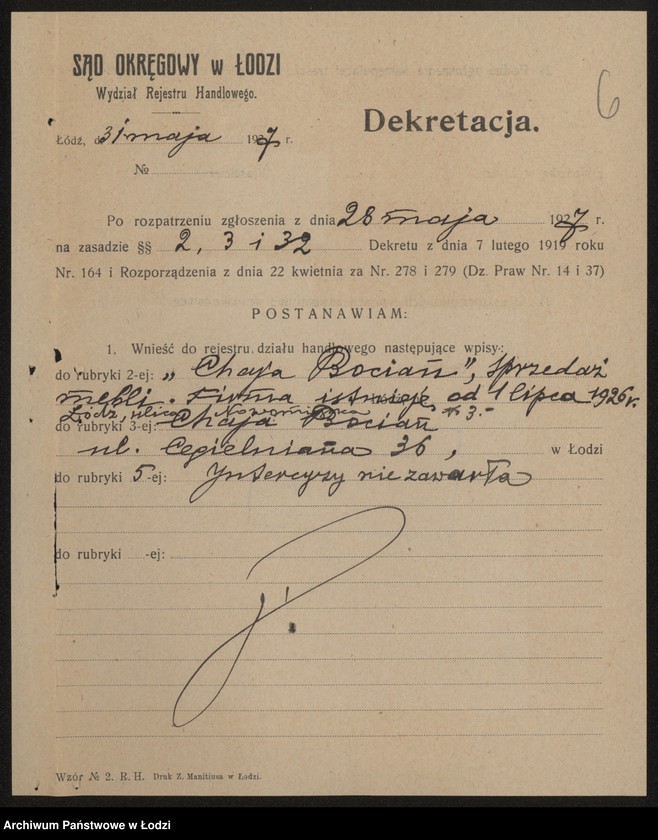 SĄD OKRĘGOWY w ŁODZI
Wydział Rejestru Handlowego.
6
Dekretacja.
Łódź, d. 31 maja 1927 r.
№
Po rozpatrzeniu zgłoszenia z dnia 28 maja 1927 r.
na zasadzie §§ 2, 3 i 32 Dekretu z dnia 7 lutego 1919 roku
Nr. 164 i Rozporządzenia z dnia 22 kwietnia za Nr. 278 i 279 (Dz. Praw Nr. 14 i 37)
POSTANAWIAM:
1. Wnieść do rejestru działu handlowego następujące wpisy:
do rubryki 2-ej: „Chaja Bocian", sprzedaż
mebli. Firma istnieje od 1 lipca 1926 r.
Łódź, ulica Nowomiejska № 3.-
do rubryki 3-ej: Chaja Bocian
ul. Cegielniana 36, w Łodzi
do rubryki 5-ej: Intercyzy nie zawarła
do rubryki -ej:
Wzór № 2. R. H. Druk Z. Manitiusa w Łodzi.
Archiwum Państwowe w Łodzi